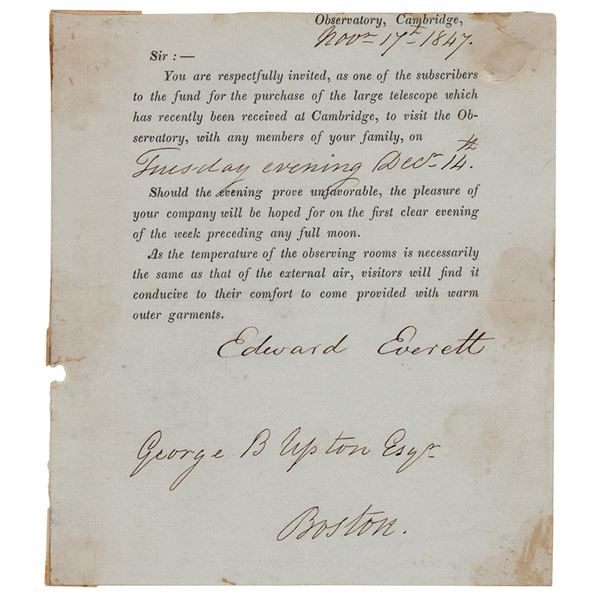 Observatory, Cambridge,
Novr 17th 1847.
Sir :—
You are respectfully invited, as one of the subscribers
to the fund for the purchase of the large telescope which
has recently been received at Cambridge, to visit the Ob-
servatory, with any members of your family, on
Tuesday evening Decr 14th.
Should the evening prove unfavorable, the pleasure of
your company will be hoped for on the first clear evening
of the week preceding any full moon.
As the temperature of the observing rooms is necessarily
the same as that of the external air, visitors will find it
conducive to their comfort to come provided with warm
outer garments.
Edward Everett
George B Upton Esqr
Boston.